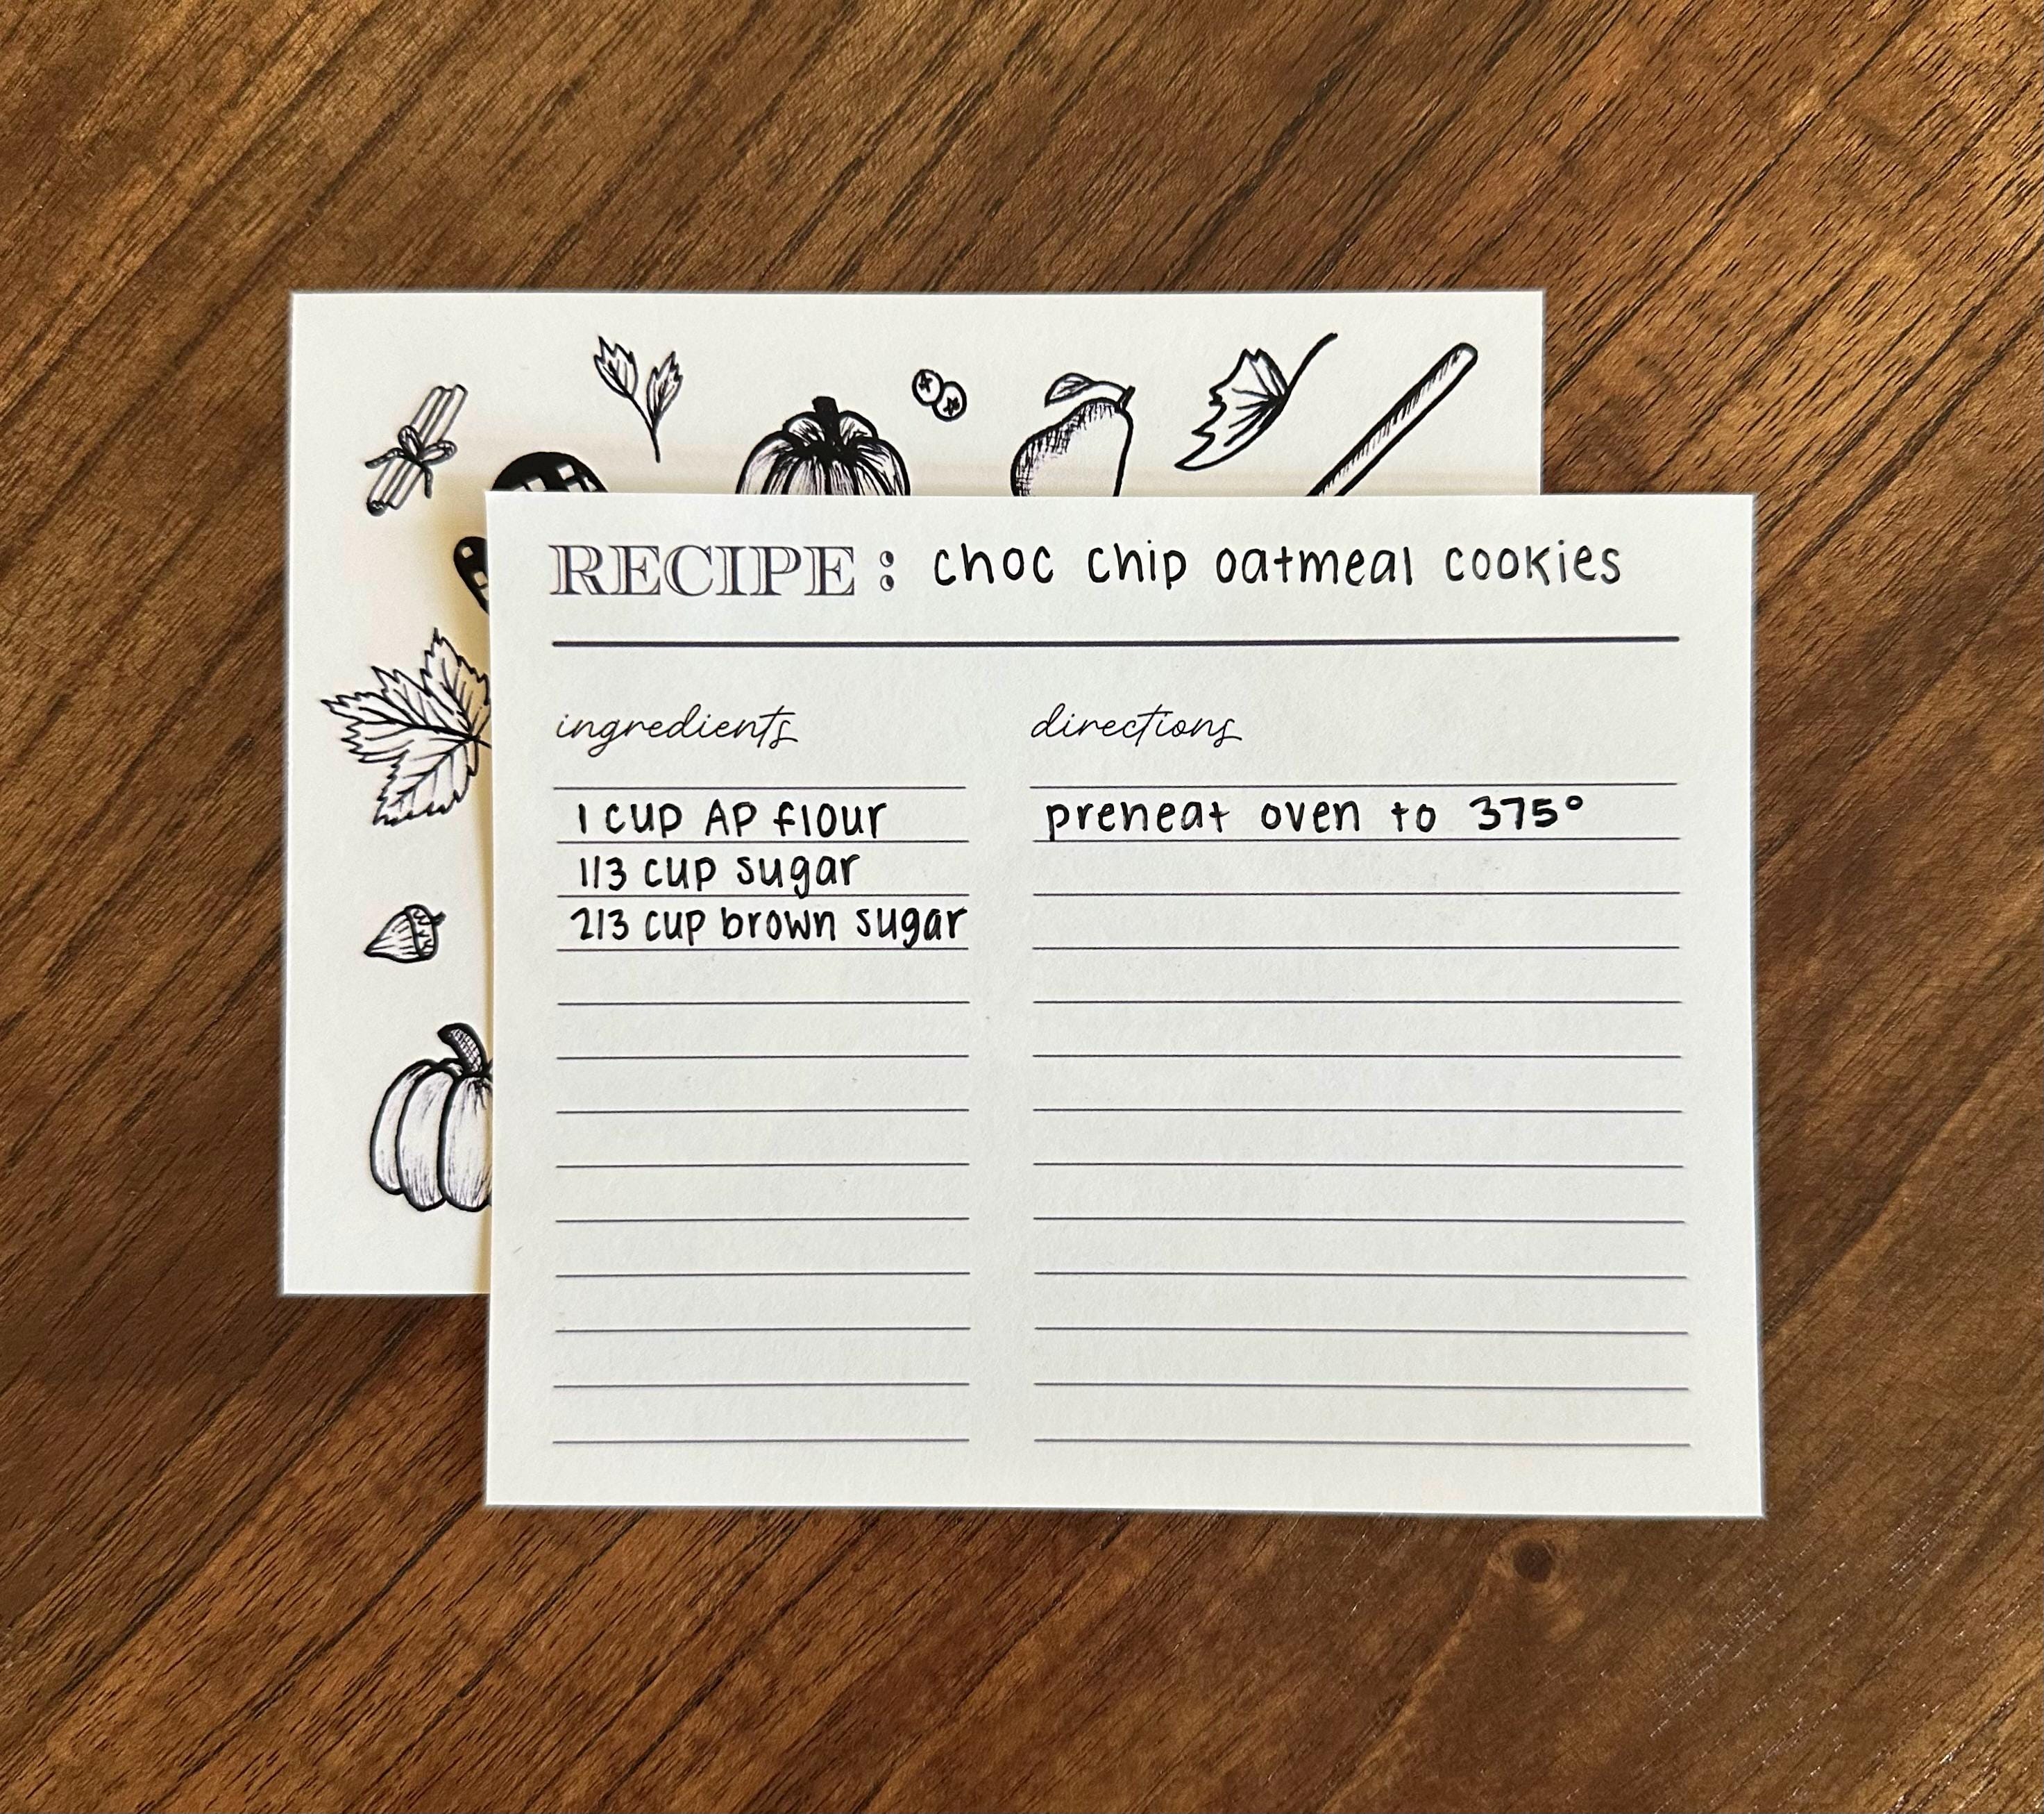 RECIPE: choc chip oatmeal cookies
ingredients
1 cup AP flour
1/3 cup sugar
2/3 cup brown sugar
directions
preheat oven to 375°